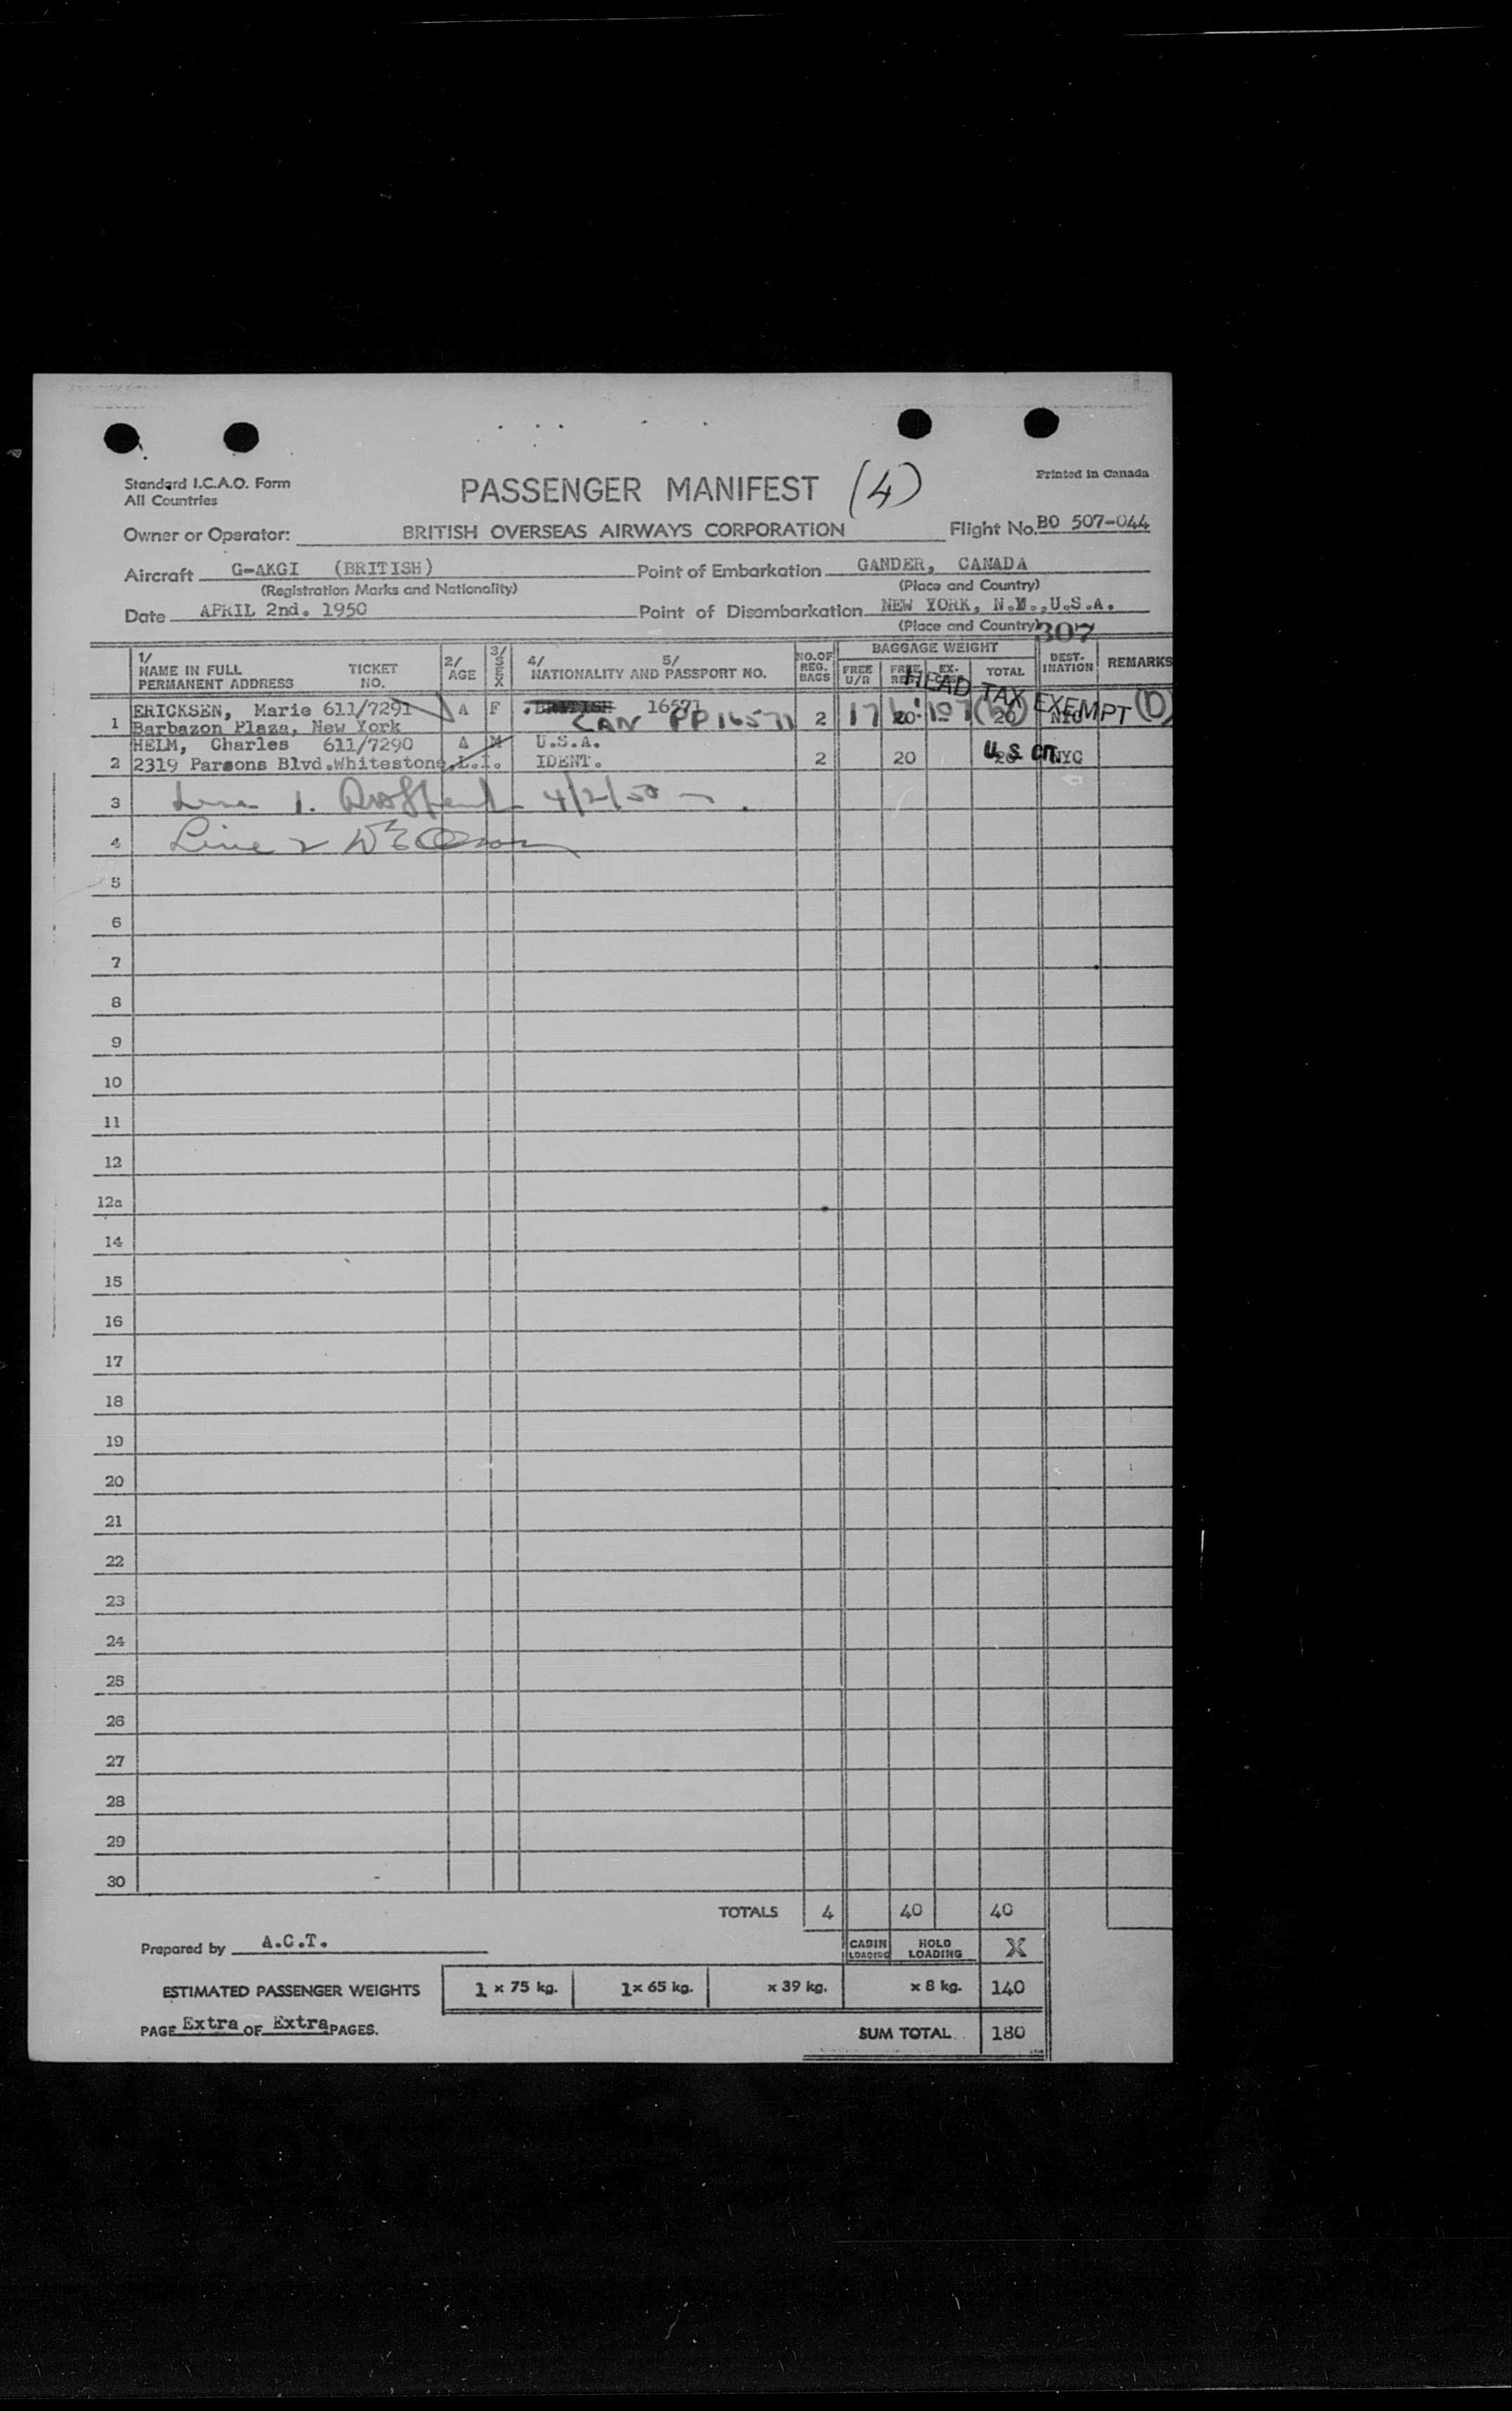 Standard I.C.A.O. Form
All Countries
PASSENGER MANIFEST (4)
Printed in Canada
Owner or Operator: BRITISH OVERSEAS AIRWAYS CORPORATION Flight No. BO 507-044
Aircraft G-AKGI (BRITISH) Point of Embarkation GANDER, CANADA
(Registration Marks and Nationality) (Place and Country)
Date APRIL 2nd. 1950 Point of Disembarkation NEW YORK, N.Y.,U.S.A.
(Place and Country) 307
1/ NAME IN FULL PERMANENT ADDRESS TICKET NO. 2/ AGE 3/ SEX 4/ 5/ NATIONALITY AND PASSPORT NO. NO.OF REG. BAGS BAGGAGE WEIGHT FREE U/R FREE REG. EX- TOTAL DEST- INATION REMARKS
HEAD TAX EXEMPT (D)
1 ERICKSEN, Marie 611/7291 A F BRITISH 16571 2 20 20 NYC
Barbazon Plaza, New York CAN PP16571
HELM, Charles 611/7290 A M U.S.A.
2 2319 Parsons Blvd.Whitestone,L.I. IDENT. 2 20 20 U.S. NYC
3 Line 1. 4/2/50
4 Line 2
5
6
7
8
9
10
11
12
12a
14
15
16
17
18
19
20
21
22
23
24
25
26
27
28
29
30
TOTALS 4 40 40
Prepared by A.C.T. CABIN LOADING HOLD LOADING X
ESTIMATED PASSENGER WEIGHTS 1 x 75 kg. 1x 65 kg. x 39 kg. x 8 kg. 140
PAGE Extra OF Extra PAGES. SUM TOTAL.. 180